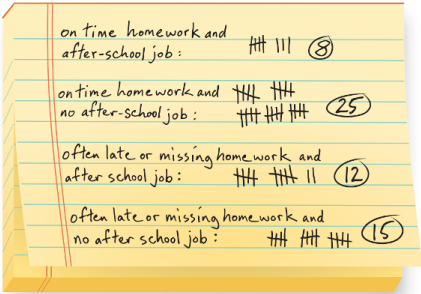 on time homework and
after-school job: 8
on time homework and
no after-school job: 25
often late or missing homework and
after school job: 12
often late or missing homework and
no after school job: 15